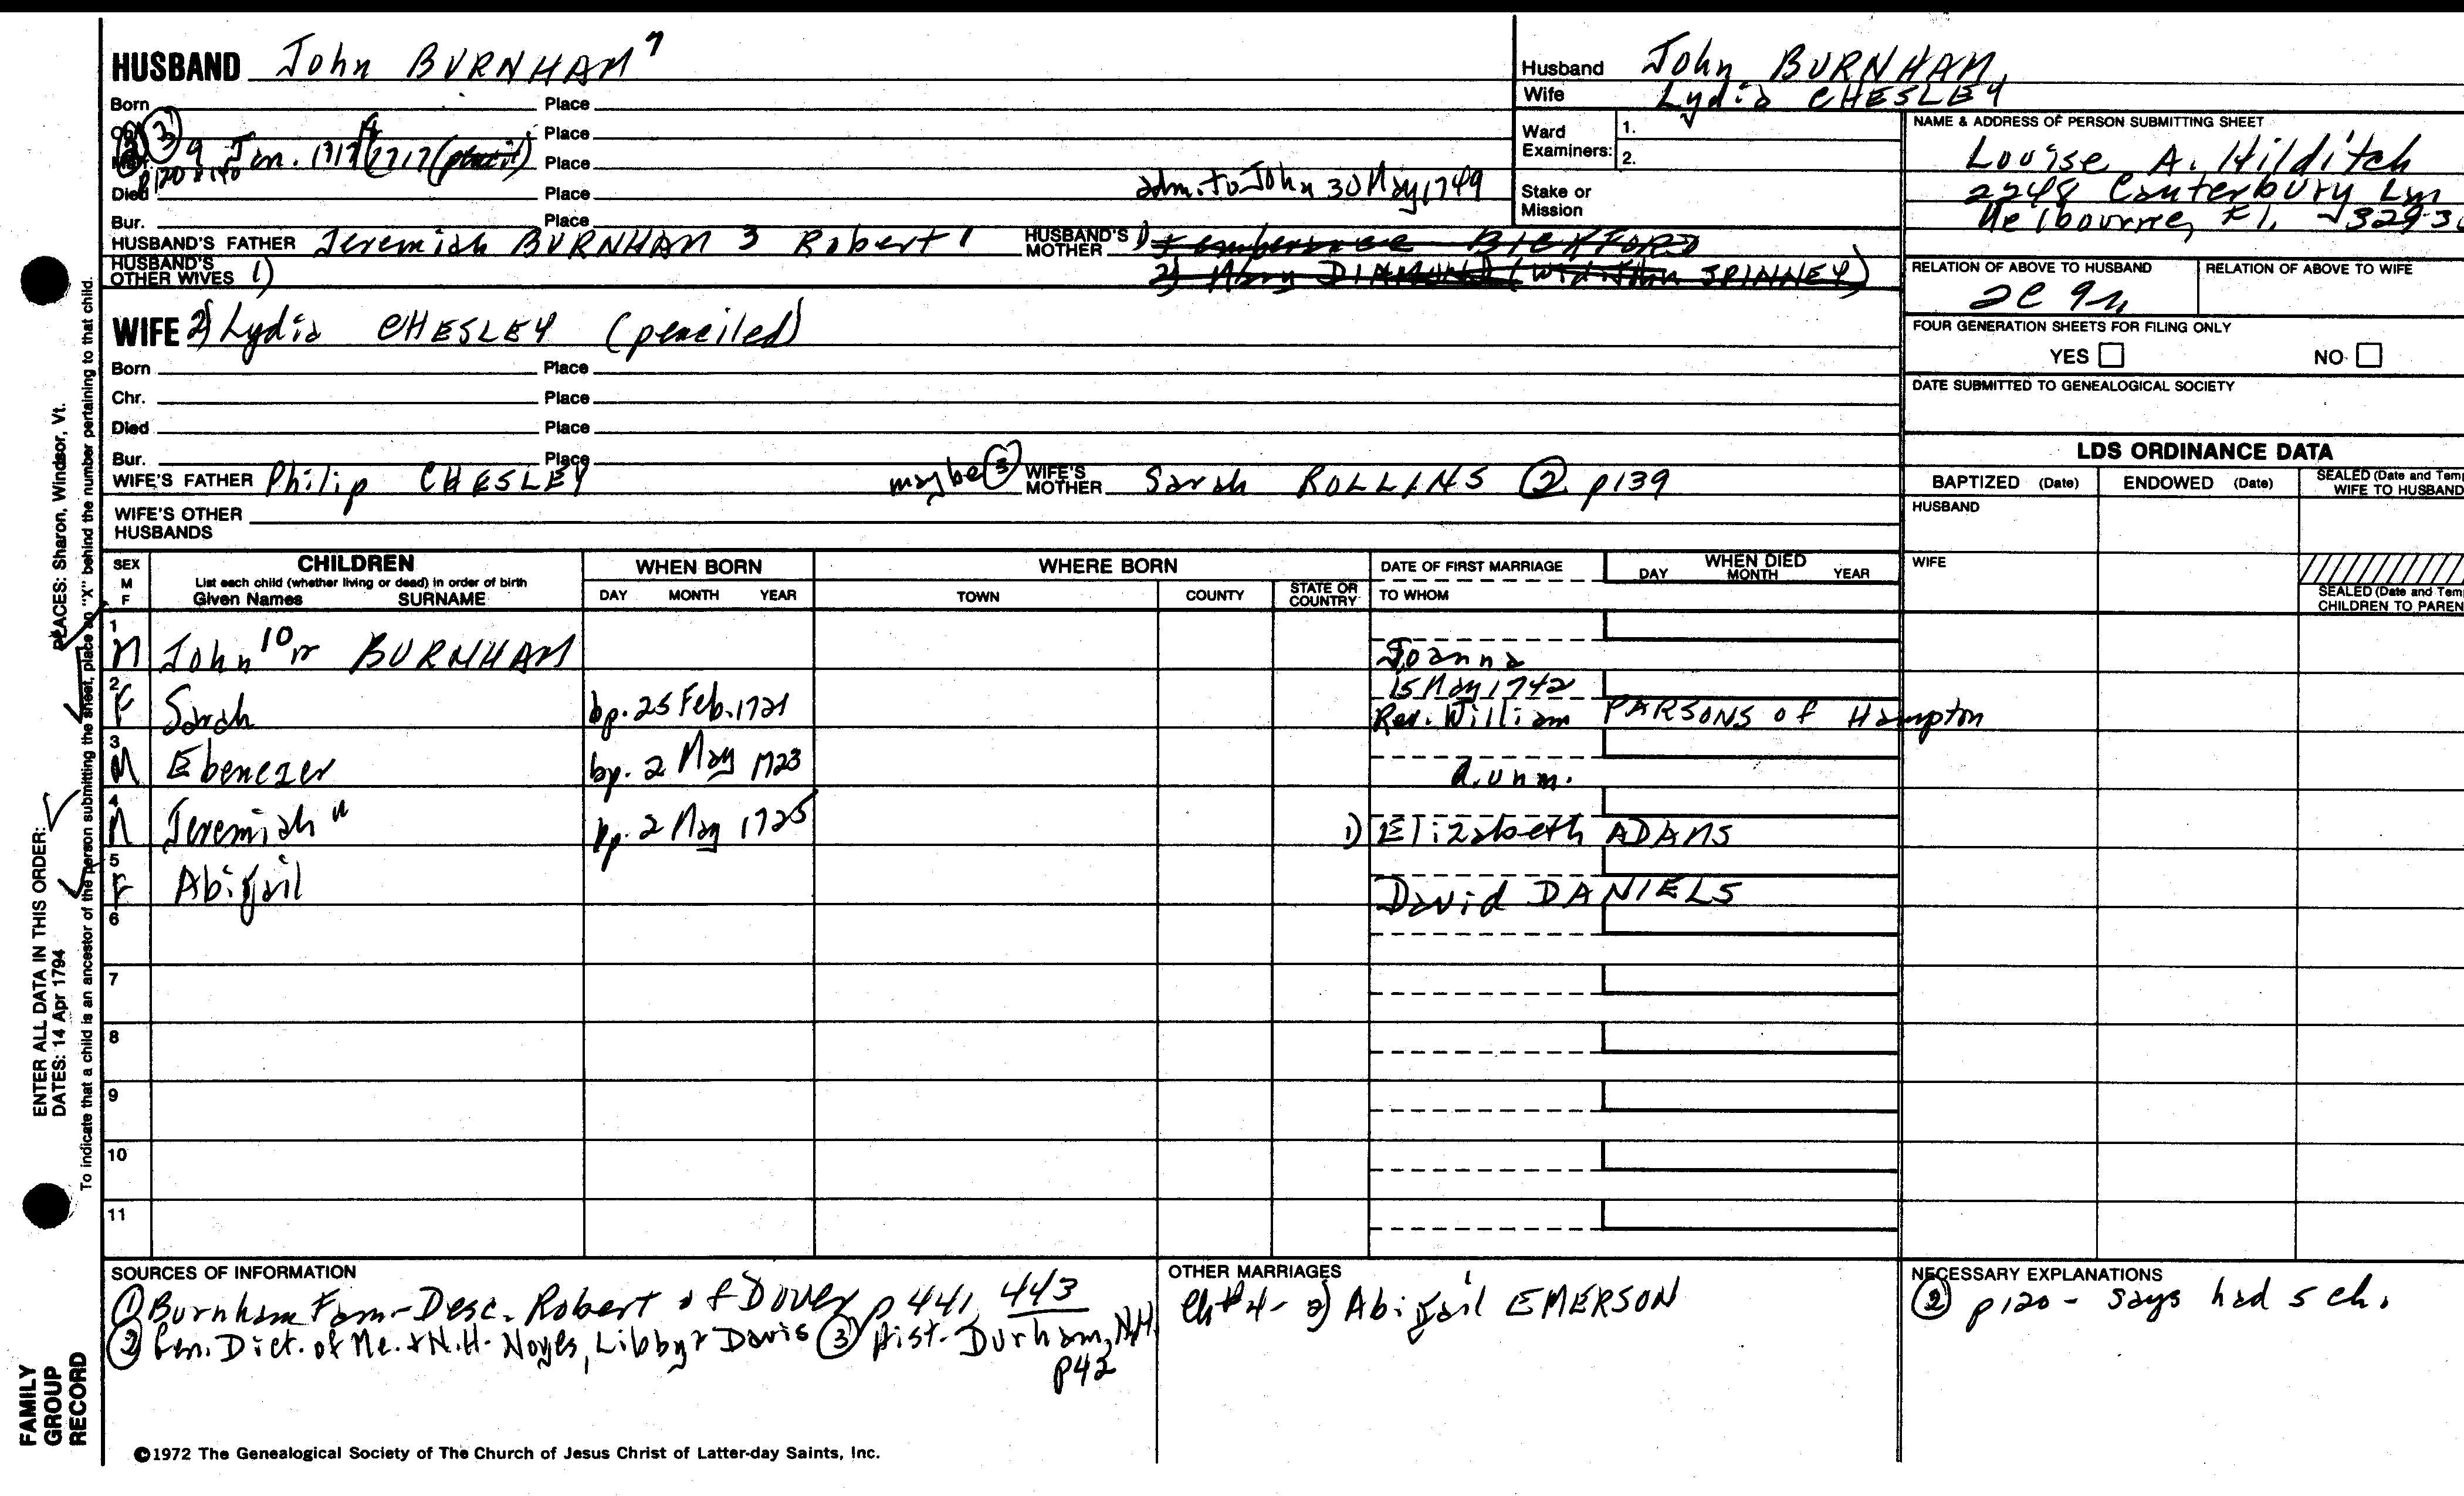 HUSBAND John BURNHAM 7
Born Place
Place
③ 9 Jan. Place
p120 & 140
Died Place adm. to John 30 May 1749
Bur. Place
HUSBAND'S FATHER Jeremiah BURNHAM 3 Robert 1 HUSBAND'S MOTHER 1) Temberance BICKFORD
HUSBAND'S OTHER WIVES 1) 2) Mary DIAMOND (wid. John SPINNEY)
WIFE 2) Lydia CHESLEY (penciled)
Born Place
Chr. Place
Died Place
Bur. Place
WIFE'S FATHER Philip CHESLEY maybe ③ WIFE'S MOTHER Sarah ROLLINS ② p139
WIFE'S OTHER HUSBANDS
Husband John BURNHAM
Wife Lydia CHESLEY
Ward Examiners: 1.
2.
Stake or Mission
NAME & ADDRESS OF PERSON SUBMITTING SHEET
Louise A. Hilditch
2248 Canterbury Ln
Melbourne, Fl.
RELATION OF ABOVE TO HUSBAND RELATION OF ABOVE TO WIFE
FOUR GENERATION SHEETS FOR FILING ONLY
YES NO
DATE SUBMITTED TO GENEALOGICAL SOCIETY
LDS ORDINANCE DATA
BAPTIZED (Date) ENDOWED (Date) SEALED (Date and Temp
WIFE TO HUSBAND
HUSBAND
WIFE
SEALED (Date and Tem
CHILDREN TO PAREN
SEX M F CHILDREN WHEN BORN WHERE BORN DATE OF FIRST MARRIAGE WHEN DIED
List each child (whether living or dead) in order of birth
Given Names SURNAME DAY MONTH YEAR TOWN COUNTY STATE OR COUNTRY TO WHOM DAY MONTH YEAR
1 M John 10 BURNHAM Joanna
15 May 1742
2 F Sarah bp. 25 Feb. 1721 Rev. William PARSONS of Hampton
3 M Ebenezer bp. 2 May 1723 d. unm.
4 M Jeremiah 11 bp. 2 May 1725 1) Elizabeth ADAMS
5 F Abigail David DANIELS
6
7
8
9
10
11
SOURCES OF INFORMATION
① Burnham Fam - Desc. Robert of Dover p 441, 443
② Gen. Dict. of Me. & N.H. Noyes, Libby & Davis ③ Hist. Durham, N.H.
p42
OTHER MARRIAGES
Ch #4 - 2) Abigail EMERSON
NECESSARY EXPLANATIONS
② p120 - says had 5 ch.
©1972 The Genealogical Society of The Church of Jesus Christ of Latter-day Saints, Inc.
PLACES: Sharon, Windsor, Vt.
ENTER ALL DATA IN THIS ORDER:
DATES: 14 Apr 1794
To indicate that a child is an ancestor of the person submitting the sheet, place an "X" behind the number pertaining to that child.
FAMILY GROUP RECORD